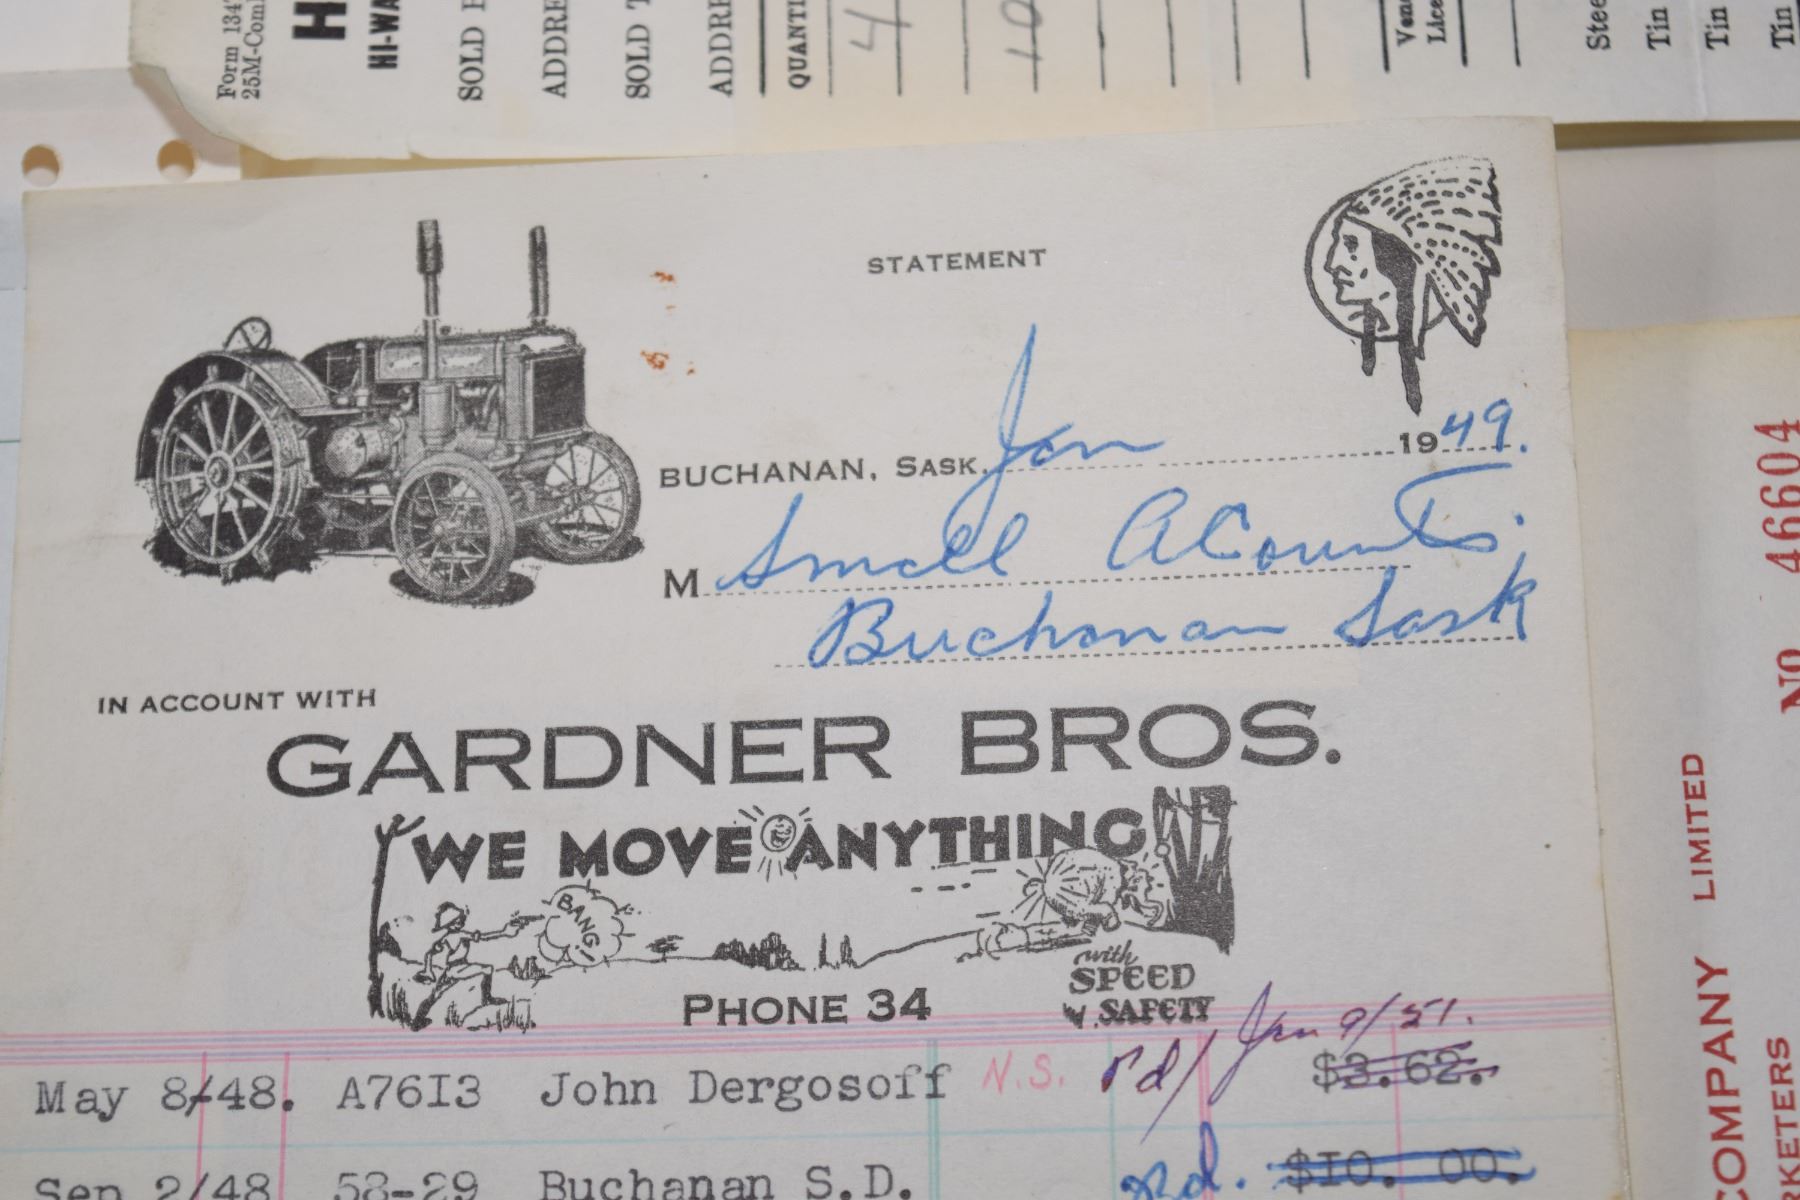 Form 134
25M-Comb
H
HI-WA
SOLD
ADDRE
SOLD T
ADDRE
QUANTI
4
10
Stee
Tin
Tin
Tin
STATEMENT
BUCHANAN, SASK. Jan 1949.
M Small ACounts,
Buchanan Sask
IN ACCOUNT WITH
GARDNER BROS.
WE MOVE ANYTHING
BANG!
with
SPEED
SAFETY
PHONE 34
May 8/48. A76I3 John Dergosoff N.S. Pd/ Jan 9/51. $3.62.
Sep 2/48 58-29 Buchanan S.D. Pd. $I0. 00.
No 46604
COMPANY LIMITED
RKETERS